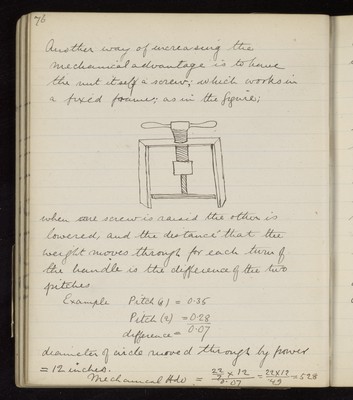 76
Another way of increasing the
mechanical advantage is to have
the nut itself a screw; which works in
a fixed frame; as in the figure;
when one screw is raised the other is
lowered, and the distance that the
weight moves through for each turn of
the handle is the difference of the two
pitches
Example Pitch (1) = 0.35
Pitch (2) = 0.28
difference = 0.07
diameter of circle moved through by power
= 12 inches.
Mechanical Adv = 22/7 × 12 / 0.07 = 22×12/.49 = 528